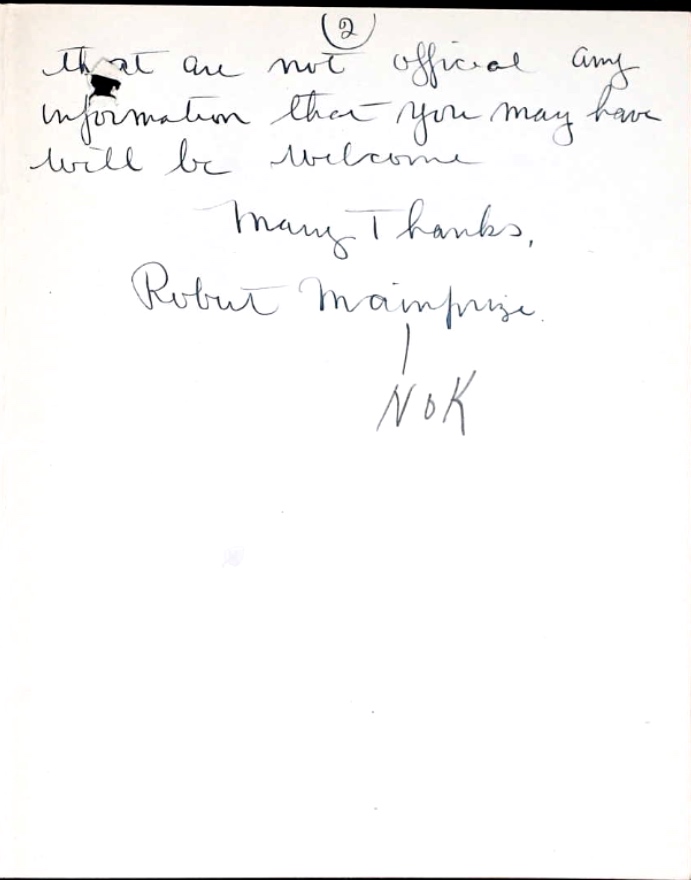 2
that are not official any
information that you may have
will be welcome
Many Thanks,
Robert Mainprize.
NoK